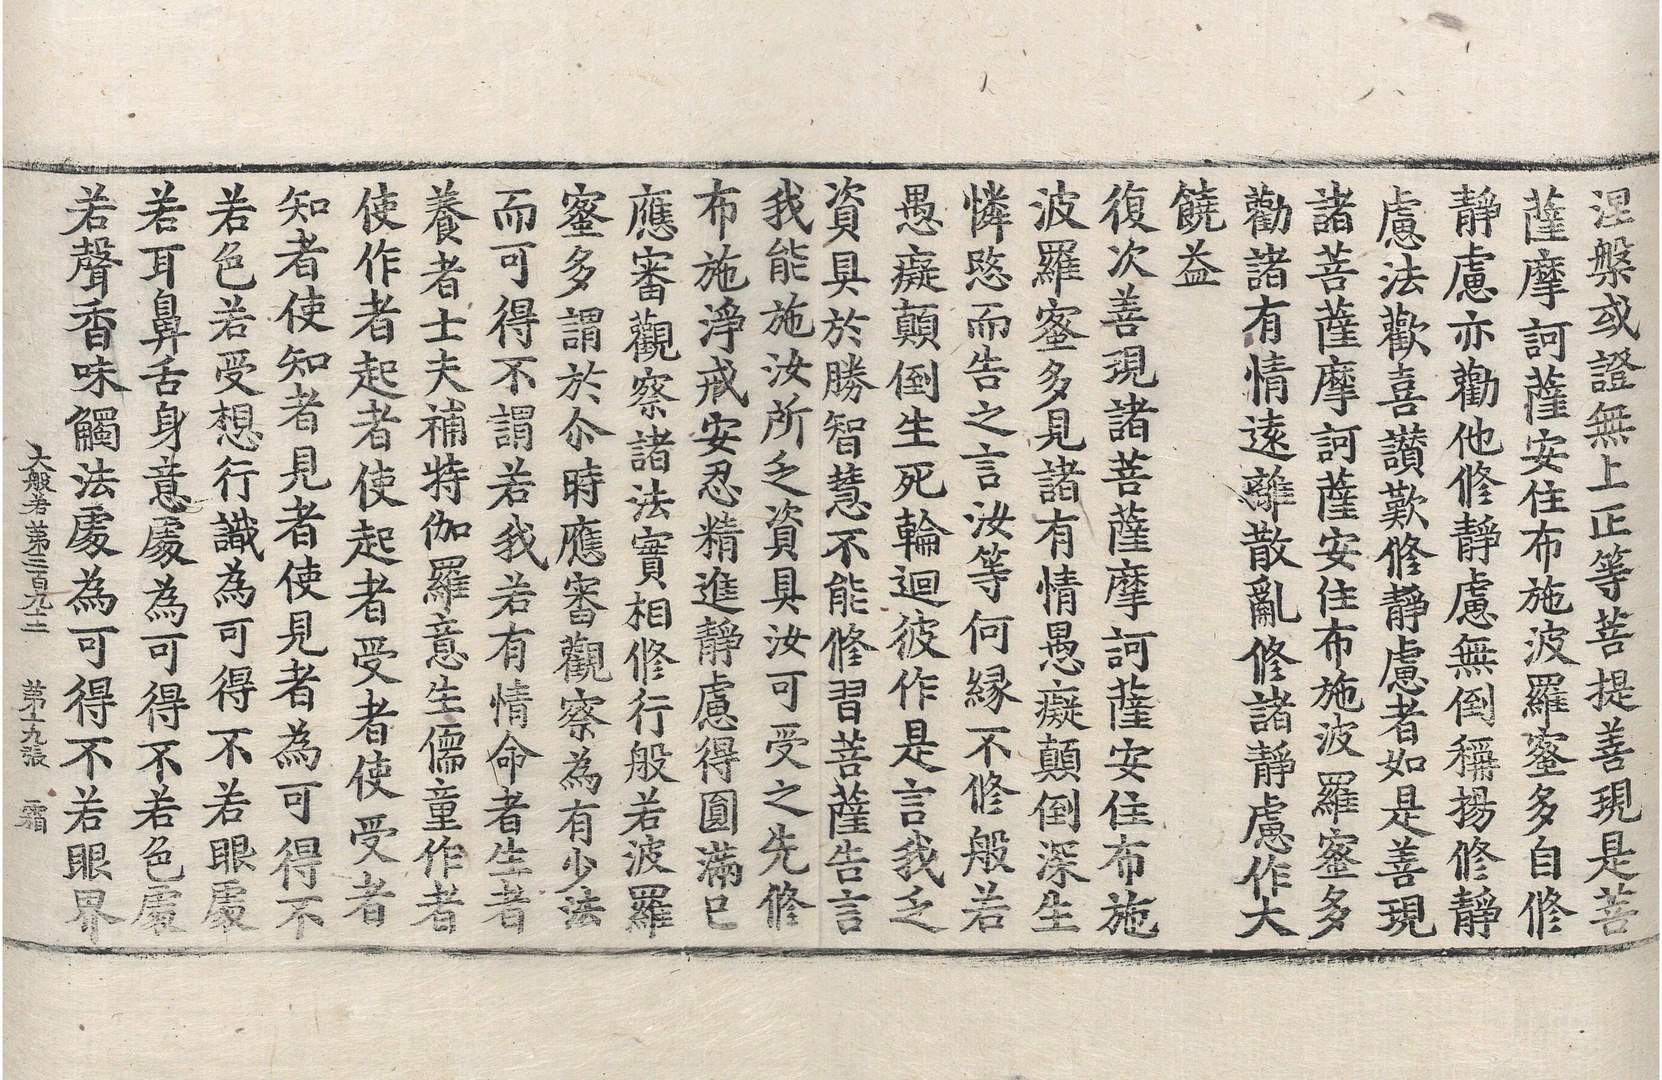 涅槃或證無上正等菩提善現是菩
薩摩訶薩安住布施波羅蜜多自修
靜慮亦勸他修靜慮無倒稱揚修靜
慮法歡喜讚歎修靜慮者如是善現
諸菩薩摩訶薩安住布施波羅蜜多
勸諸有情遠離散亂修諸靜慮作大
饒益
復次善現諸菩薩摩訶薩安住布施
波羅蜜多見諸有情愚癡顛倒深生
憐愍而告之言汝等何緣不修般若
愚癡顛倒生死輪迴彼作是言我乏
資具於勝智慧不能修習菩薩告言
我能施汝所乏資具汝可受之先修
布施淨戒安忍精進靜慮得圓滿已
應審觀察諸法實相修行般若波羅
蜜多謂於尒時應審觀察為有少法
而可得不謂若我若有情命者生者
養者士夫補特伽羅意生儒童作者
使作者起者使起者受者使受者
知者使知者見者使見者為可得不
若色若受想行識為可得不若眼處
若耳鼻舌身意處為可得不若色處
若聲香味觸法處為可得不若眼界
大般若第三百九十二 第十九張 霜